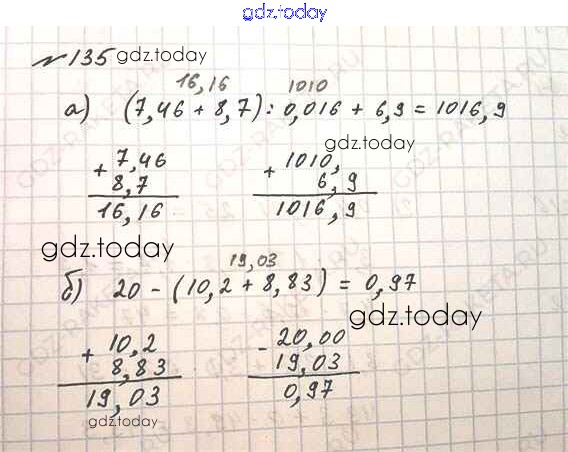 gdz.today
№ 135 gdz.today
16,16 1010
а) (7,46 + 8,7) : 0,016 + 6,9 = 1016,9
gdz.today
+ 7,46
8,7
16,16
+ 1010,
6,9
1016,9
gdz.today
19,03
б) 20 - (10,2 + 8,83) = 0,97
gdz.today
+ 10,2
8,83
19,03
- 20,00
19,03
0,97
gdz.today